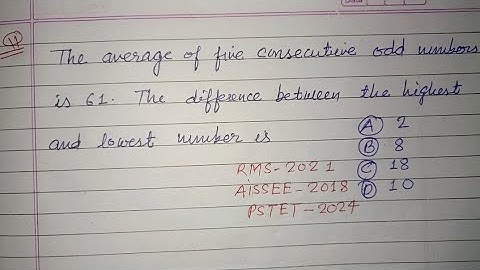 11
The average of five consecutive odd numbers
is 61. The difference between the highest
and lowest number is
(A) 2
(B) 8
RMS-2021 (C) 18
AISSEE-2018 (D) 10
PSTET-2024